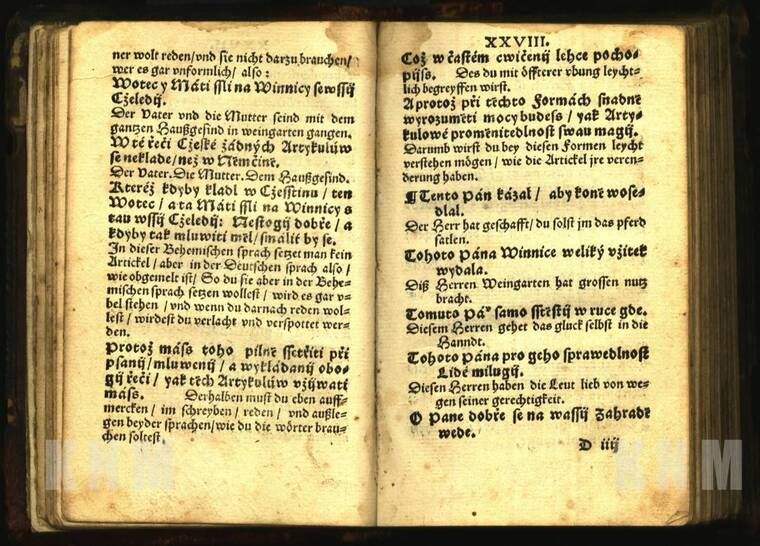 ner wolt reden/vnd sie nicht darzu brauchen/
wer es gar vnformlich/ also:
Wotec y Máti ssli na Winnicy se wssij
Cželedij.
Der Vater vnd die Mutter seind mit dem
gantzen Haußgesind in weingarten gangen.
W té řeči Czeské žádných Artykulůw
se neklade/než w Němčině.
Der Vater. Die Mutter. Dem Haußgesind.
Kteréž kdyby kladl w Cžesstinu/ ten
Wotec/ a ta Máti ssli na Winnicy s
tau wssij Cželedij: Nestogij dobře/ a
kdyby tak mluwiti měl/smáliť by se.
In dieser Behemischen sprach setzet man kein
Artickel/ aber in der Deutschen sprach also/
wie obgemelt ist/ So du sie aber in der Behe-
mischen sprach setzen wollest/ wird es gar v-
bel stehen/ vnd wenn du darnach reden wol-
lest/ wirdest du verlacht vnd verspottet wer-
den.
Protož máss toho pilně ssetřiti při
psanij/mluwenij/ a wykládanij obo-
gij řeči/ yak těch Artykulůw vžijwati
máss. Derhalben must du eben auff-
mercken/ im schreyben/ reden/ vnd außle-
gen beyder sprachen/wie du die wörter brau-
chen soltest.
XXVIII.
Což w častém cwičenij lehce pocho-
pijss. Des du mit öffterer vbung leycht-
lich begreyffen wirst.
A protož při těchto Formách snadně
wyrozuměti mocy budess/ yak Arty-
kulowé proměnitedlnost swau magij.
Darumb wirst du bey diesen Formen leycht
verstehen mögen/ wie die Artickel jre veren-
derung haben.
¶ Tento Pán kázal/ aby koně wose-
dlal.
Der Herr hat geschafft/du solst jm das pferd
satlen.
Tohoto Pána Winnice weliký vžitek
wydala.
Diß Herren Weingarten hat grossen nutz
bracht.
Tomuto Pá° samo sstěstij w ruce gde.
Diesem Herren gehet das gluck selbst in die
Hanndt.
Tohoto Pána pro geho sprawedlnost
Lidé milugij.
Diesen Herren haben die Leut lieb von we-
gen seiner gerechtigkeit.
O Pane dobře se na wassij Zahradě
wede.
D iiij
KNM
KNM